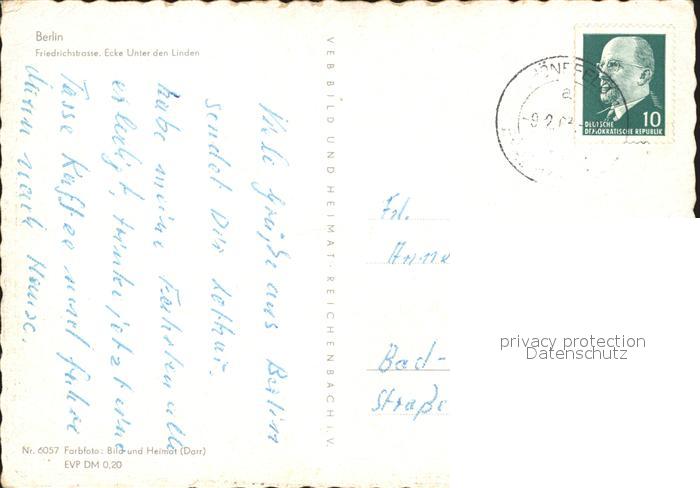 Berlin
Friedrichstrasse. Ecke Unter den Linden
Viele Grüße aus Berlin
sendet Dir Lothar.
Habe meine Fahrten alle
erledigt, trinke jetzt eine
Tasse Kaffee und fahre
dann nach Hause.
Nr. 6057 Farbfoto: Bild und Heimat (Darr)
EVP DM 0,20
VEB BILD UND HEIMAT · REICHENBACH i. V.
DEUTSCHE
DEMOKRATISCHE REPUBLIK
10
a
Frl.
Anne
privacy protection
Datenschutz
Bad-
Straße